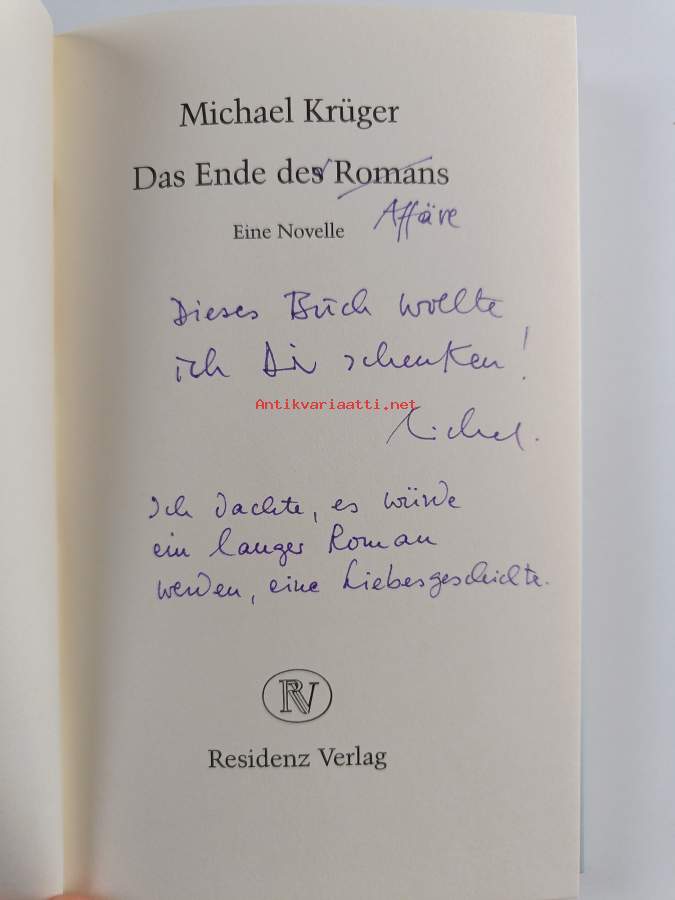 Michael Krüger
Das Ende des Romans
Affäre
Eine Novelle
Dieses Buch wollte
ich Dir schenken!
Antikvariaatti.net
Michel.
Ich dachte, es würde
ein langer Roman
werden, eine Liebesgeschichte.
RV
Residenz Verlag